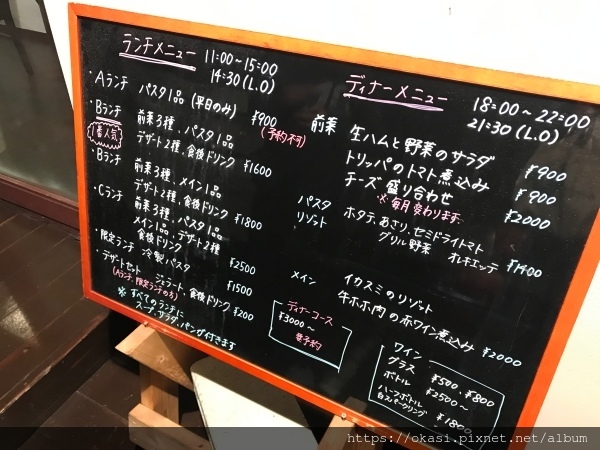 ランチメニュー 11:00~15:00
14:30(L.O)
・Aランチ パスタ1品(平日のみ) ¥900
(予約不可)
・Bランチ 前菜3種、パスタ1品
1番人気 デザート2種、食後ドリンク ¥1600
・Bランチ 前菜3種、メイン1品
デザート2種、食後ドリンク ¥1800
・Cランチ 前菜3種、パスタ1品
メイン1品、デザート2種
食後ドリンク ¥2500
・限定ランチ 冷製パスタ ¥1500
・デザートセット ジェラート、食後ドリンク ¥200
(Aランチ、限定ランチのみ)
※すべてのランチに
スープ、サラダ、パンが付きます
ディナーメニュー 18:00~22:00
21:30(L.O)
前菜 生ハムと野菜のサラダ ¥900
トリッパのトマト煮込み ¥900
チーズ盛り合わせ ¥2000
※毎月変わります
パスタ ホタテ、あさり、セミドライトマト
リゾット グリル野菜 オレキエッテ ¥1400
イカスミのリゾット
メイン 牛ホホ肉の赤ワイン煮込み ¥2000
ディナーコース
¥3000~
要予約
ワイン
グラス ¥500、¥800
ボトル ¥2500~
ハーフボトル
白スパークリング ¥1800
https://okasi.pixnet.net/album